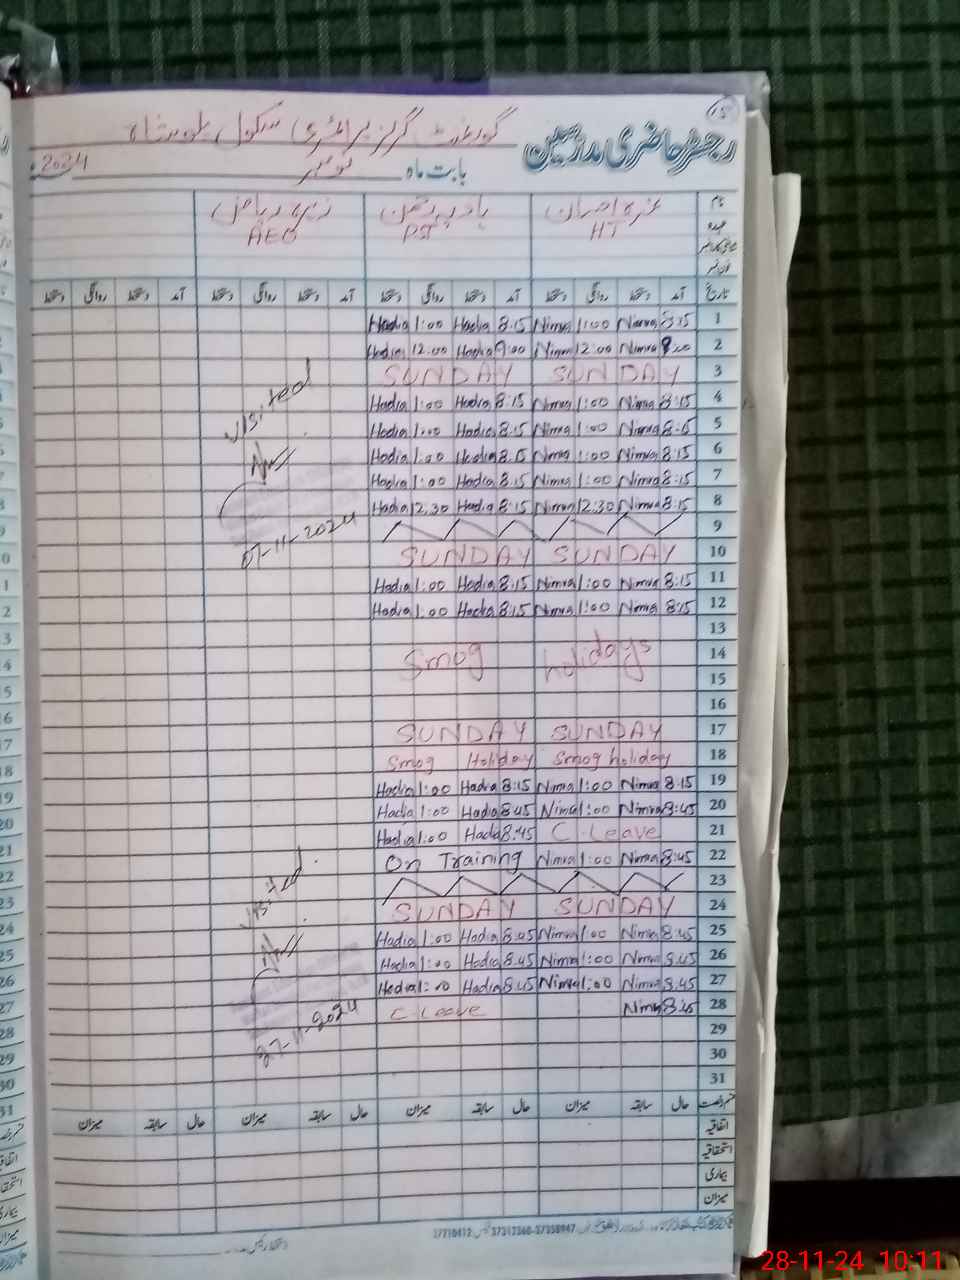 گورنمنٹ گرلز پرائمری سکول
رجسٹر حاضری مدرسین
بابت ماہ نومبر 2024
نام
عہدہ
HT PST AEO
تاریخ آمد دستخط روانگی دستخط آمد دستخط روانگی دستخط آمد دستخط روانگی دستخط آمد دستخط روانگی دستخط
Hadia 1:00 Hadia 8:15 Nimra 1:00 Nimra 8:15 1
Hadia 12:00 Hadia 9:00 Nimra 12:00 Nimra 2
SUNDAY SUNDAY 3
Hadia 1:00 Hadia 8:15 Nimra 1:00 Nimra 8:15 4
Hadia 1:00 Hadia 8:15 Nimra 1:00 Nimra 8:15 5
Hadia 1:00 Hadia 8:15 Nimra 1:00 Nimra 8:15 6
Hadia 1:00 Hadia 8:15 Nimra 1:00 Nimra 8:15 7
Hadia 12:30 Hadia 8:15 Nimra 12:30 Nimra 8:15 8
Visited
-11-2024
9
SUNDAY SUNDAY 10
Hadia 1:00 Hadia 8:15 Nimra 1:00 Nimra 8:15 11
Hadia 1:00 Hadia 8:15 Nimra 1:00 Nimra 8:15 12
13
Smog holidays 14
15
16
SUNDAY SUNDAY 17
Smog Holiday Smog holiday 18
Hadia 1:00 Hadia 8:15 Nimra 1:00 Nimra 8:15 19
Hadia 1:00 Hadia 8:45 Nimra 1:00 Nimra 8:45 20
Hadia 1:00 Hadia 8:45 C.Leave 21
On Training Nimra 1:00 Nimra 8:45 22
23
SUNDAY SUNDAY 24
Hadia 1:00 Hadia 8:45 Nimra 1:00 Nimra 8:45 25
Hadia 1:00 Hadia 8:45 Nimra 1:00 Nimra 8:45 26
Hadia 1:00 Hadia 8:45 Nimra 1:00 Nimra 8:45 27
C.Leave Nimra 8:45 28
Visited
27-11-2024
29
30
31
حال سابقہ میزان حال سابقہ میزان حال سابقہ میزان حال سابقہ میزان
اتفاقیہ
استحقاقیہ
بیماری
میزان
28-11-24 10:11